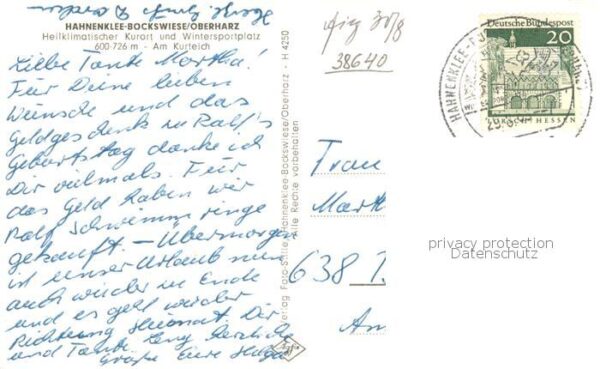 HAHNENKLEE-BOCKSWIESE/OBERHARZ
Heilklimatischer Kurort und Wintersportplatz
600-726 m - Am Kurteich
H 4250
Liebe Tante Martha!
Für Deine lieben
Wünsche und das
Geldgeschenk zu Ralf's
Geburtstag danke ich
Dir vielmals. Für
das Geld haben wir
Ralf Schwimmringe
gekauft - Übermorgen
ist unser Urlaub nun
auch wieder zu Ende
und es geht wieder
Richtung Heimat. Dir
und Tante herzliche
Grüße Eure Helga
Verlag Foto-Stille, Hahnenklee-Bockswiese/Oberharz
Alle Rechte vorbehalten
Agfa
38640
Deutsche Bundespost
20
LORSCH HESSEN
HAHNENKLEE-
Frau
Mart
638
An
privacy protection
Datenschutz